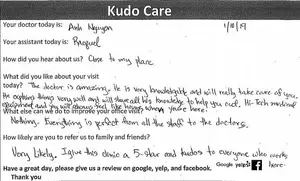 Kudo Care
Your doctor today is: Anh Nguyen 1/10/19
Your assistant today is: Raquel
How did you hear about us? Close to my place
What did you like about your visit
today? "The doctor is amazing. He is very knowledgable and will really take care of you.
He explains things very well and will share all his knowledge to help you out. Hi-Tech medical
equipment and you will always feel like home when you're here.
What else can we do to improve your office visit?
Nothing. Everything is perfect from all the staff to the doctors.
How likely are you to refer us to family and friends?
Very likely. I give this clinic a 5-star and kudos to everyone who works
here.
Google yelp f
Have a great day, please give us a review on google, yelp, and facebook.
Thank you